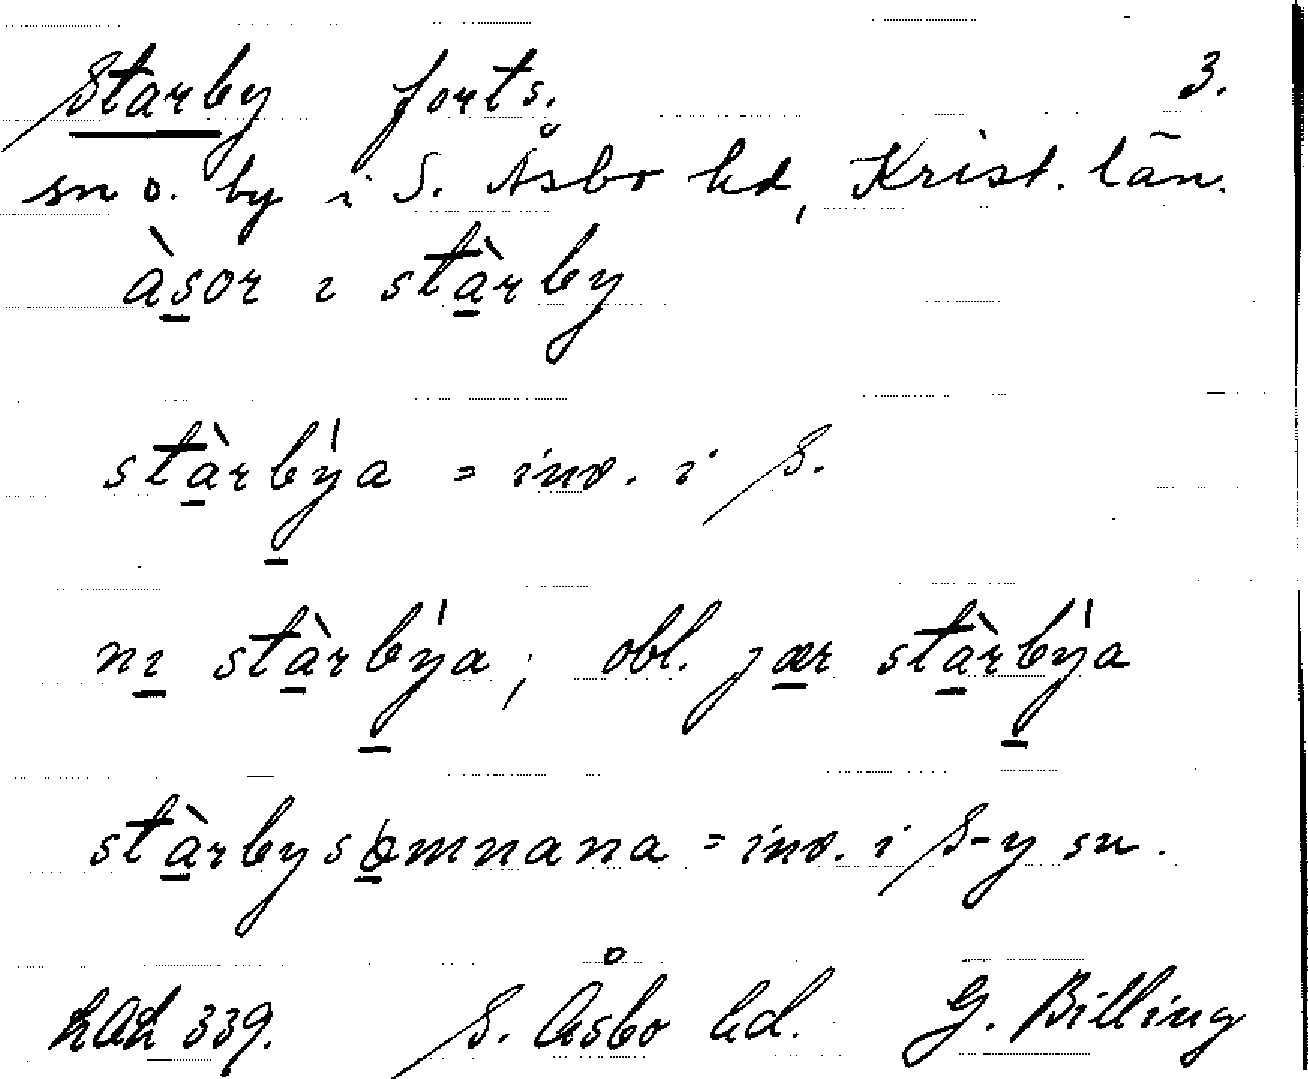 Starby forts. 3.
sn o. by i S. Åsbo hd, Krist. län.
àsor ı stàrby
stàrbýa = inv. i S.
nı stàrbýa; obl. jær stàrbýa
stàrbysømnana = inv. i S-y sn.
339. S. Åsbo hd. G. Billing